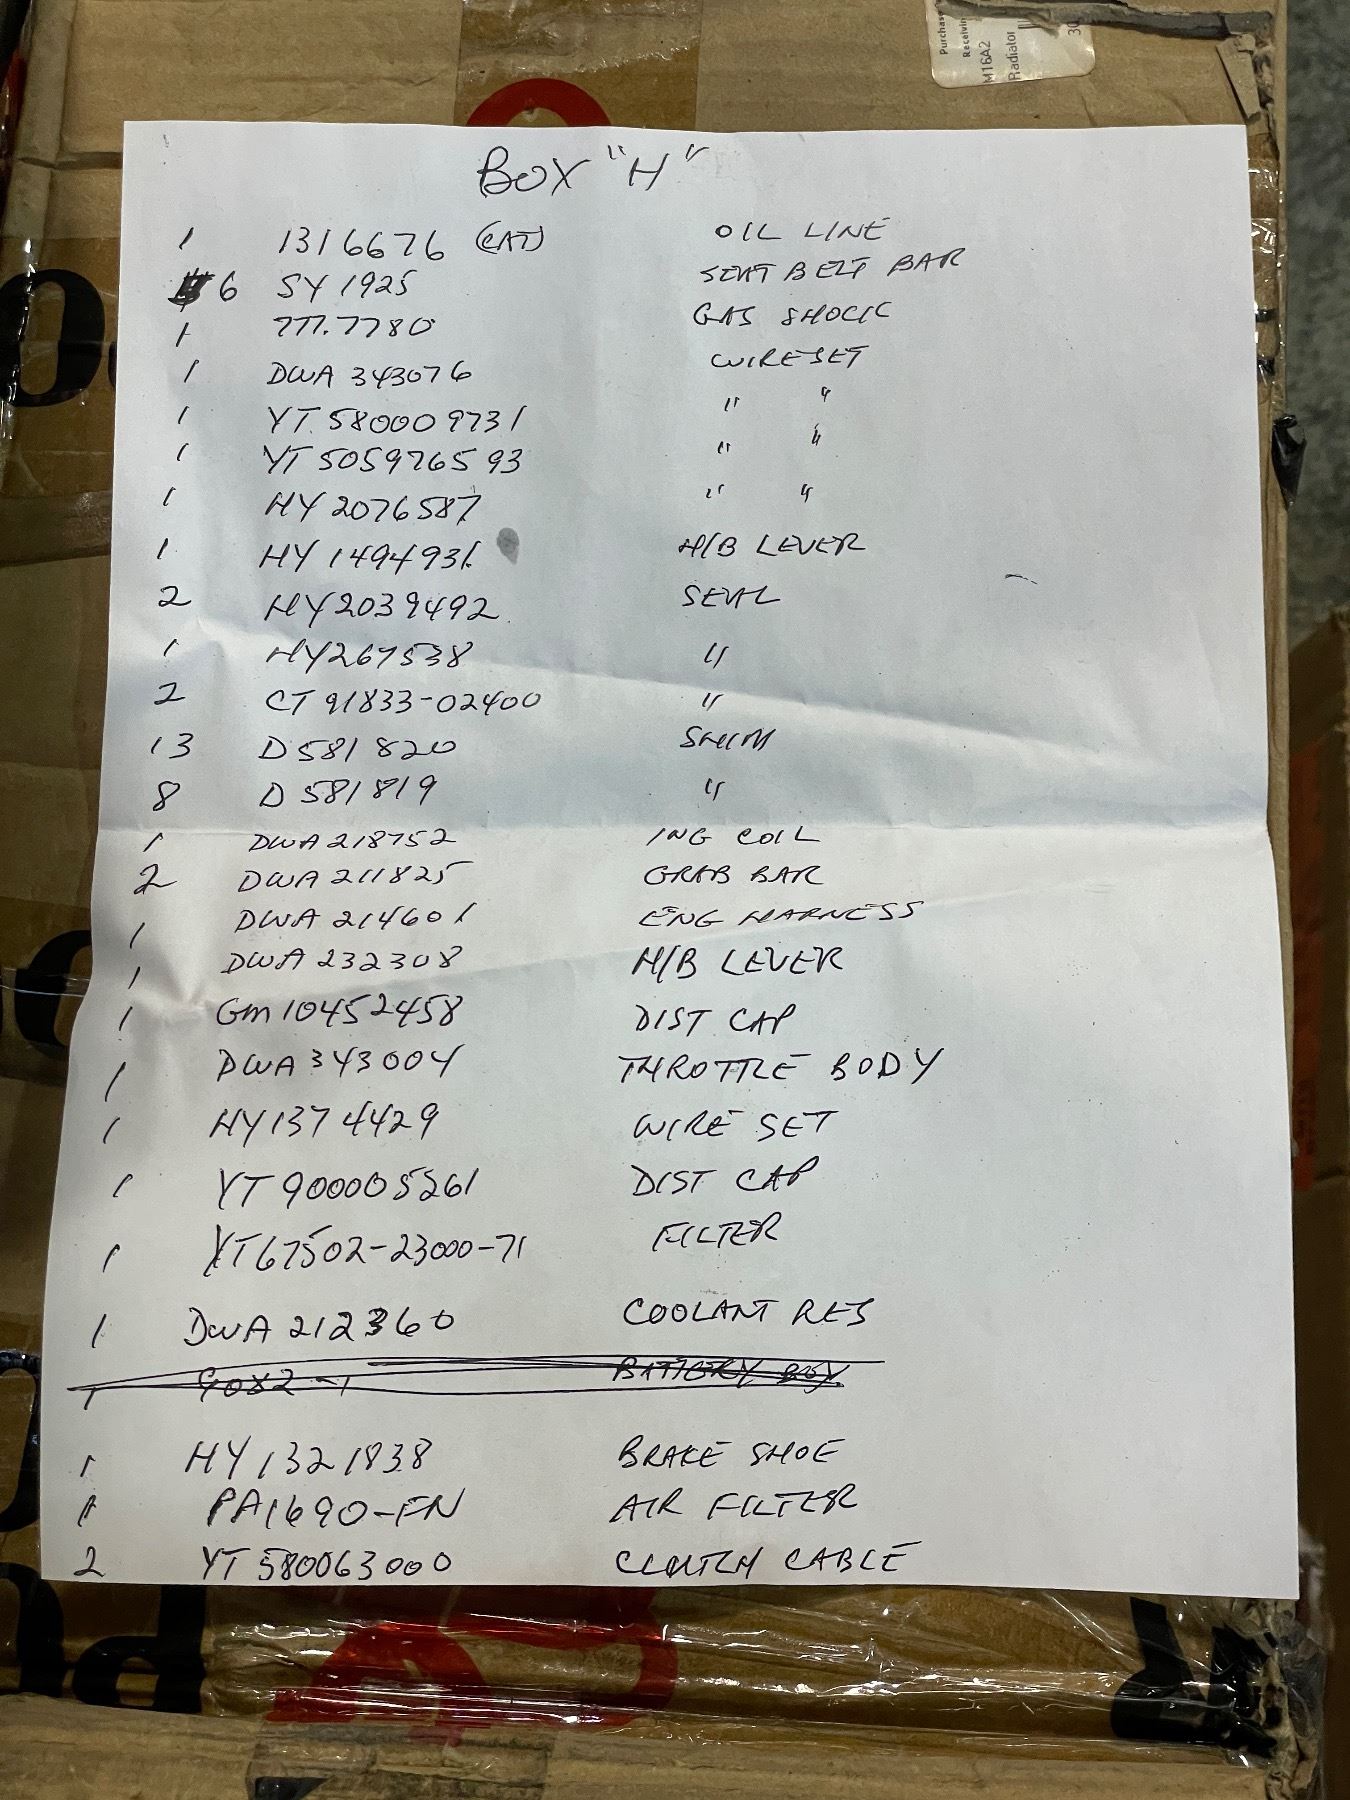 Purchase
Receivin
M16A2
Radiator
30
BOX "H"
1 1316676 (CAT) OIL LINE
6 SY 1925 SEAT BELT BAR
1 777.7780 GAS SHOCK
1 DWA 343076 WIRESET
1 YT 580009731 " "
1 YT 505976593 " "
1 HY 2076587 " "
1 HY 1494931 H/B LEVER
2 HY2039492 SEAL
1 HY267538 "
2 CT 91833-02400 "
13 D581820 SHIM
8 D 581819 "
1 DWA218752 ING COIL
2 DWA 211825 GRAB BAR
1 DWA 214601 ENG HARNESS
1 DWA 232308 H/B LEVER
1 Gm10452458 DIST CAP
1 DWA343004 THROTTLE BODY
1 HY1374429 WIRE SET
1 YT900005261 DIST CAP
1 YT67502-23000-71 FILTER
1 DWA 212360 COOLANT RES
1 9082-1 BATTERY BOX
1 HY1321838 BRAKE SHOE
1 PA1690-FN AIR FILTER
2 YT580063000 CLUTCH CABLE